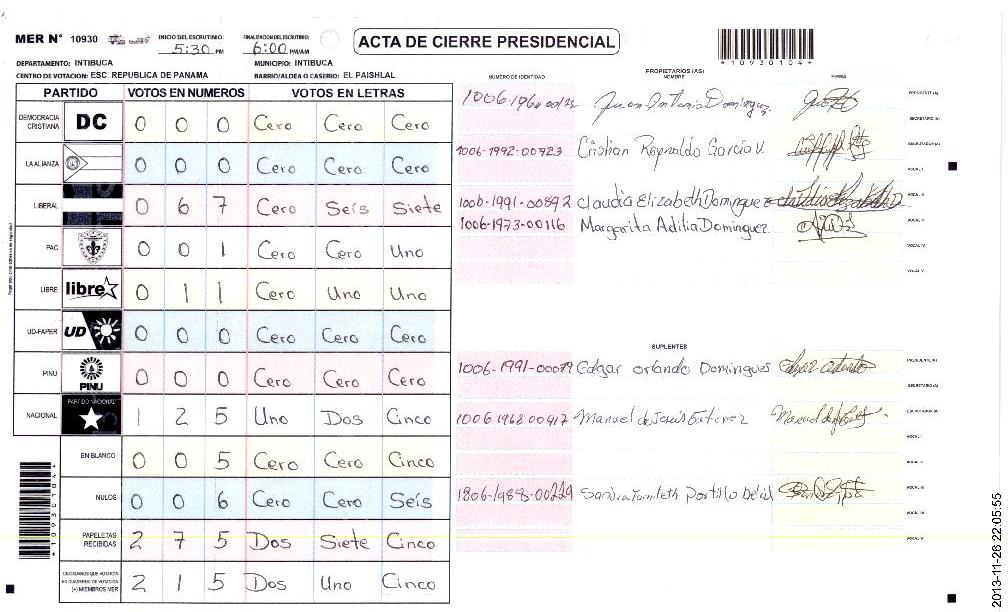 MER N° 10930 INICIO DEL ESCRUTINIO: 5:30 PM FINALIZACION DEL ESCRUTINIO: 6:00 PM/AM
ACTA DE CIERRE PRESIDENCIAL
*10930104*
DEPARTAMENTO: INTIBUCA MUNICIPIO: INTIBUCA
CENTRO DE VOTACION: ESC. REPUBLICA DE PANAMA BARRIO/ALDEA O CASERIO: EL PAISHLAL
PARTIDO VOTOS EN NUMEROS VOTOS EN LETRAS
DEMOCRACIA CRISTIANA DC 0 0 0 Cero Cero Cero
LA ALIANZA 0 0 0 Cero Cero Cero
LIBERAL 0 6 7 Cero Seis Siete
PAC 0 0 1 Cero Cero Uno
LIBRE libre 0 1 1 Cero Uno Uno
UD-FAPER UD 0 0 0 Cero Cero Cero
PINU PINU 0 0 0 Cero Cero Cero
NACIONAL PARTIDO NACIONAL 1 2 5 Uno Dos Cinco
EN BLANCO 0 0 5 Cero Cero Cinco
NULOS 0 0 6 Cero Cero Seis
PAPELETAS RECIBIDAS 2 7 5 Dos Siete Cinco
CIUDADANOS QUE VOTARON EN CUADERNO DE VOTACION (+) MIEMBROS MER 2 1 5 Dos Uno Cinco
*10930104*
PROPIETARIOS (AS)
NUMERO DE IDENTIDAD NOMBRE FIRMA
Juan Antonio Dominguez PRESIDENTE (A)
SECRETARIO (A)
1006-1992-00923 Cristian Reynaldo Garcia V. ESCRUTADOR (A)
VOCAL I
1006-1991-00892 Claudia Elizabeth Dominguez VOCAL II
1006-1973-00116 Margarita Adilia Dominguez VOCAL III
VOCAL IV
VOCAL V
SUPLENTES
1006-1991-00079 Edgar orlando Domingues PRESIDENTE (A)
SECRETARIO (A)
1006 1968 00417 Manuel de Jesús Gutierez ESCRUTADOR (A)
VOCAL I
VOCAL II
1806-1988-00229 Portillo VOCAL III
VOCAL IV
VOCAL V
2013-11-26 22:05:55